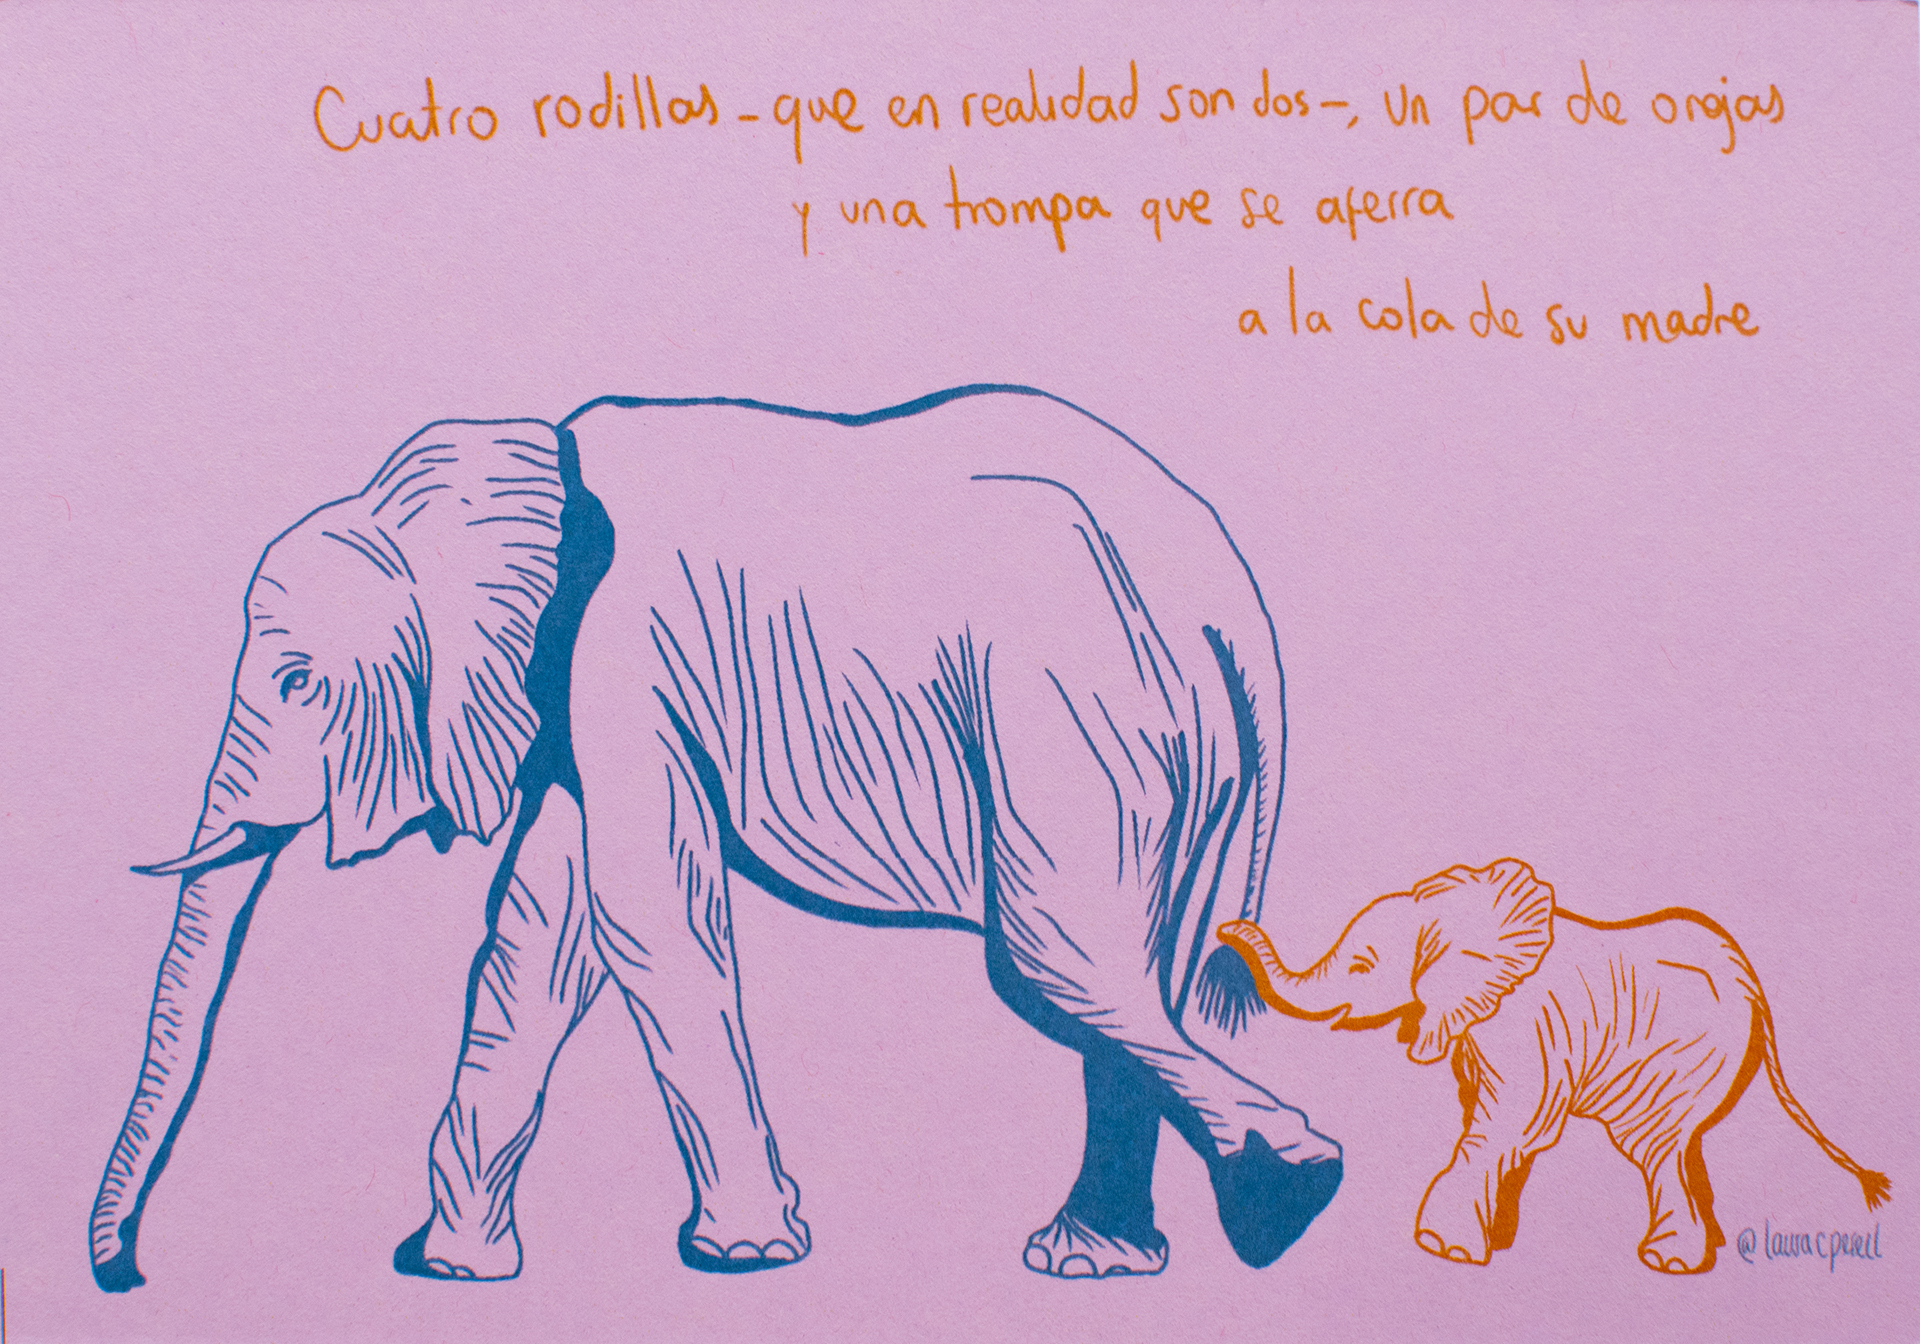 Cuatro rodillas -que en realidad son dos-, un par de orejas
y una trompa que se aferra
a la cola de su madre
@lauracperell